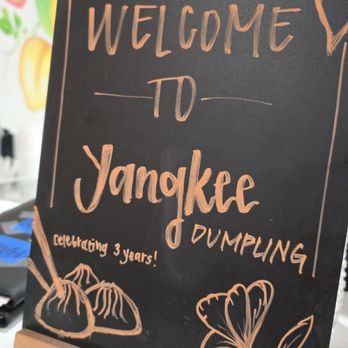 WELCOME
TO
Yangkee
DUMPLING
Celebrating 3 years!